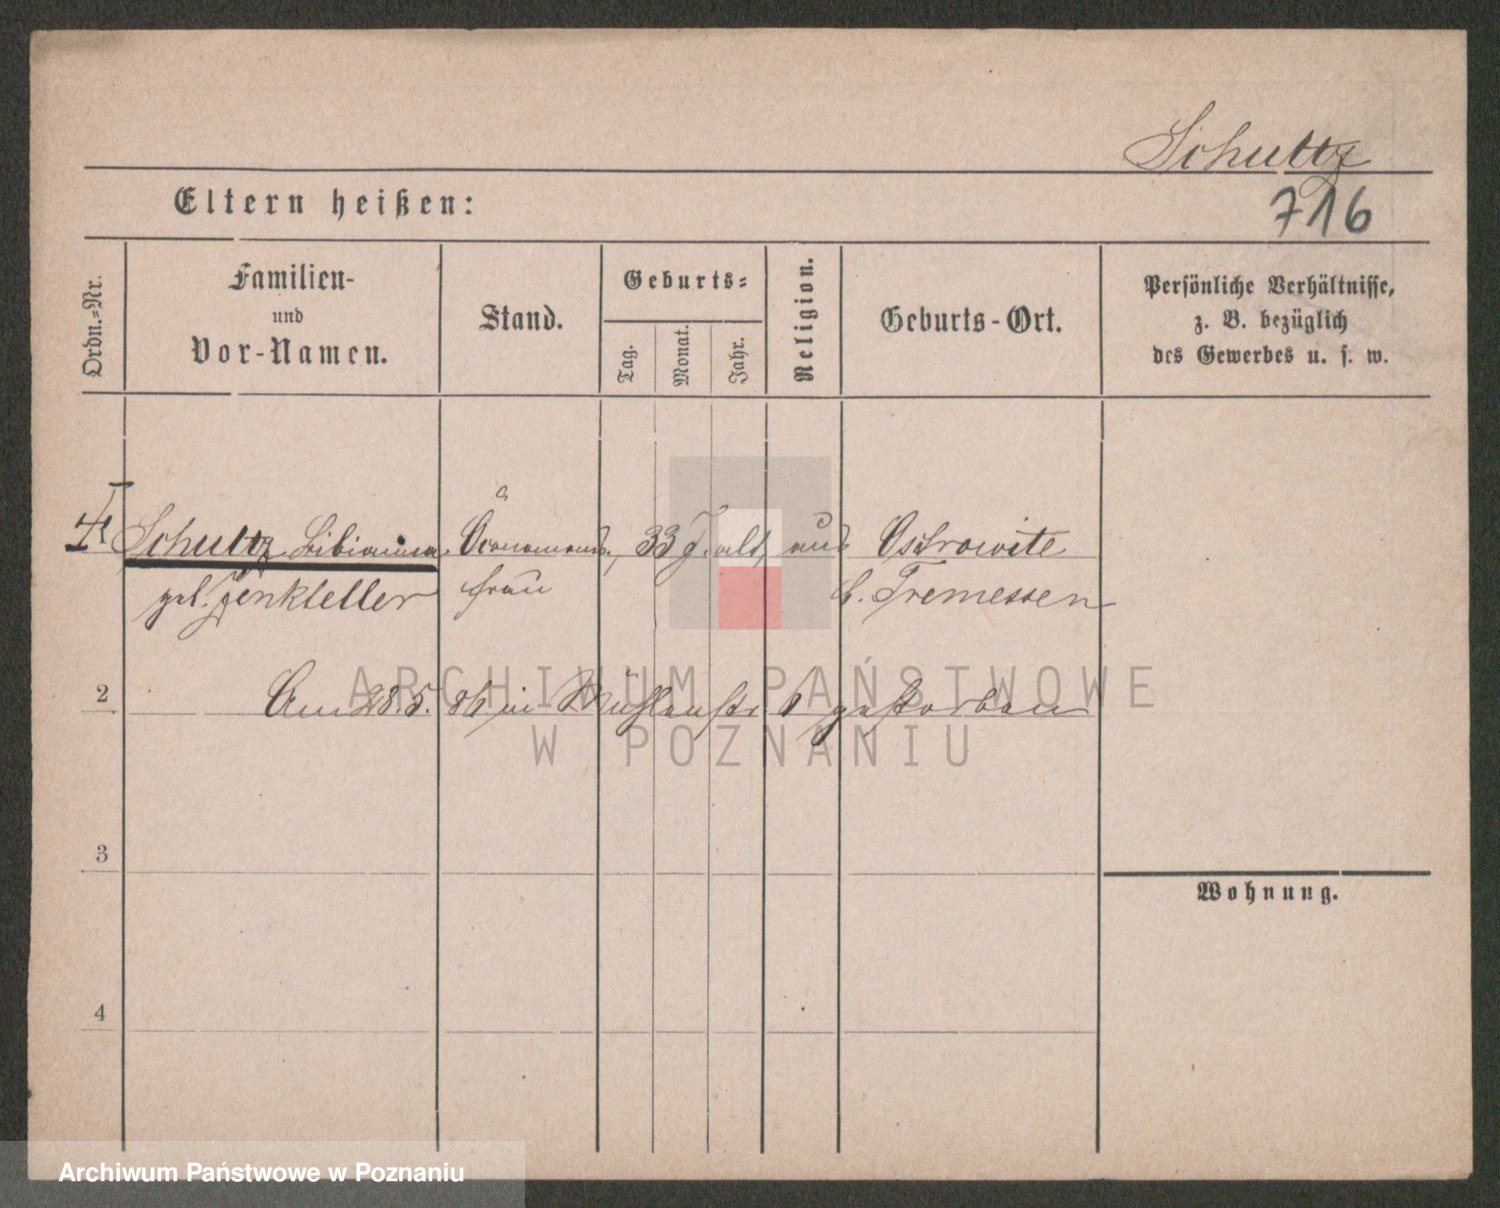 Schultz
716
Eltern heißen:
Ordn.-Nr.
Familien-
und
Vor-Namen.
Stand.
Geburts-
Tag.
Monat.
Jahr.
Religion.
Geburts-Ort.
Persönliche Verhältnisse,
z. B. bezüglich
des Gewerbes u. s. w.
Schultz Bibianna, 33 J. alt, aus Ostrowite
geb. Zenkteller frau b. Tremessen
2 Am 28.5.86 in Mühlenstr 6 gestorben
3
4
Wohnung.
ARCHIWUM PAŃSTWOWE
W POZNANIU
Archiwum Państwowe w Poznaniu